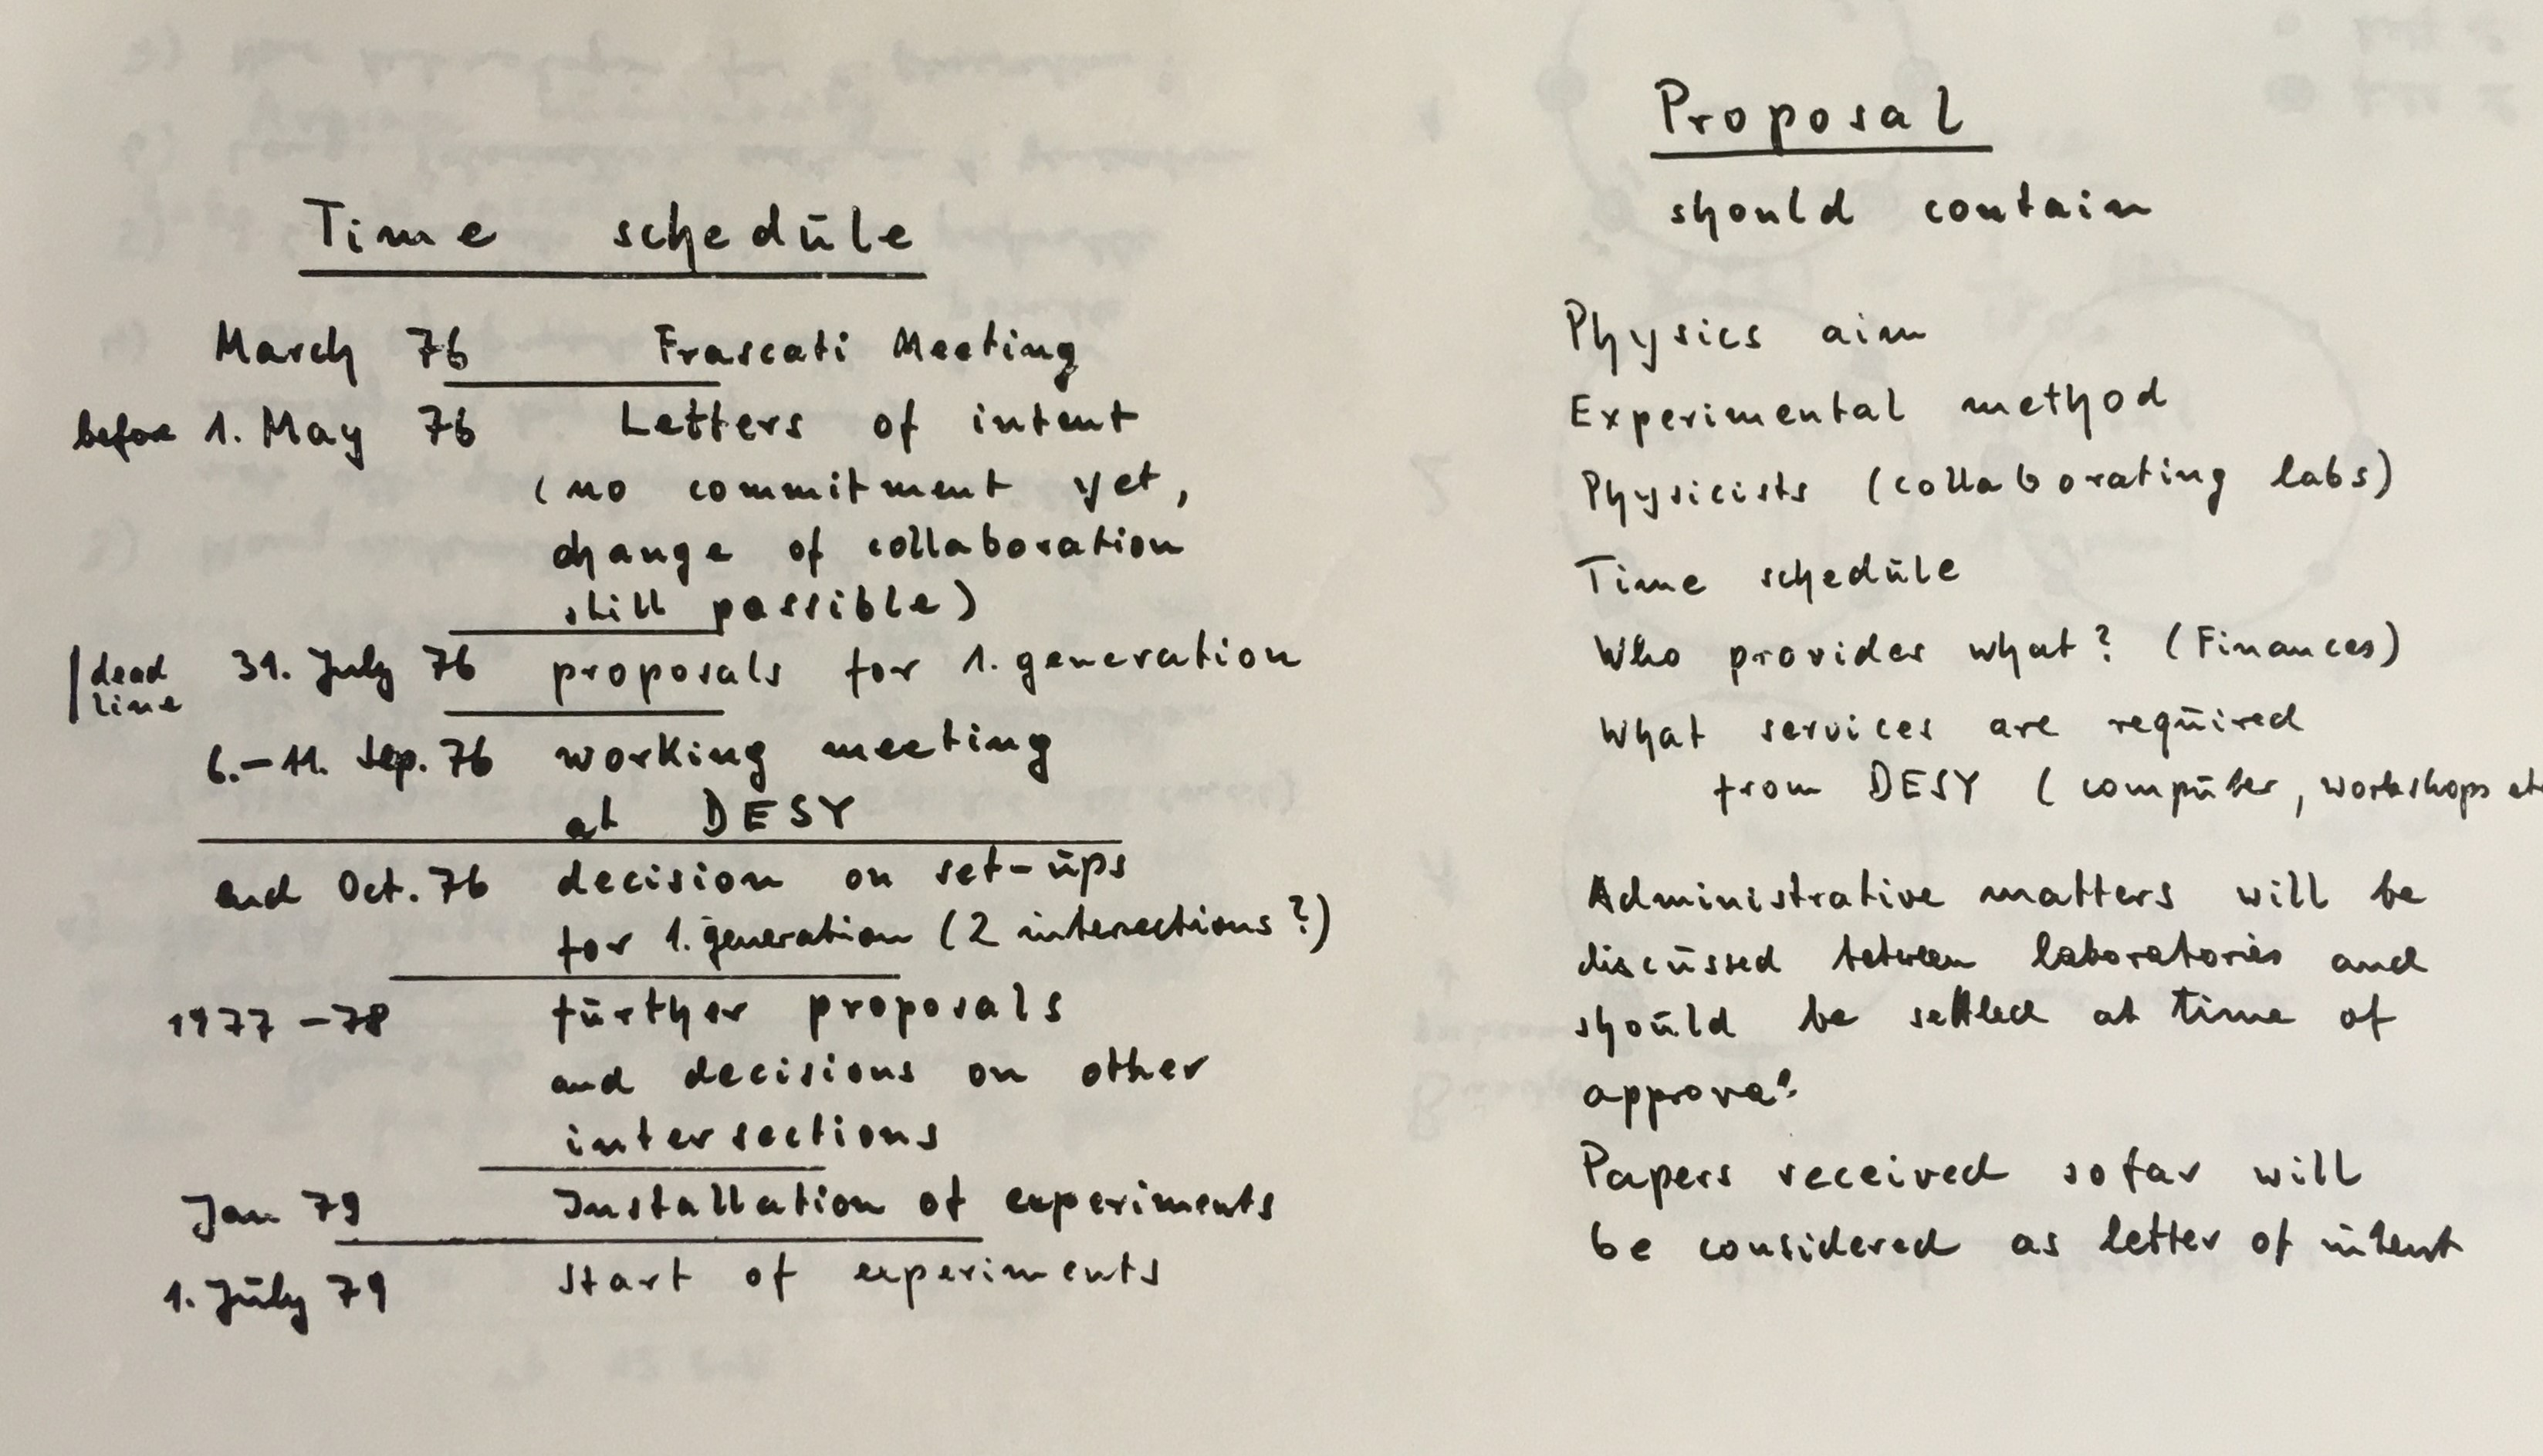 Time schedule
March 76 Frascati Meeting
before 1. May 76 Letters of intent
(no commitment yet,
change of collaboration
still possible)
dead line 31. July 76 proposals for 1. generation
6.-11. Sep. 76 working meeting
at DESY
end Oct. 76 decision on set-ups
for 1. generation (2 intersections?)
1977-78 further proposals
and decisions on other
intersections
Jan 79 Installation of experiments
1. July 79 start of experiments
Proposal
should contain
Physics aim
Experimental method
Physicists (collaborating labs)
Time schedule
Who provides what? (Finances)
What services are required
from DESY (computer, workshops
Administrative matters will be
discussed between laboratories and
should be settled at time of
approval
Papers received sofar will
be considered as letter of intent